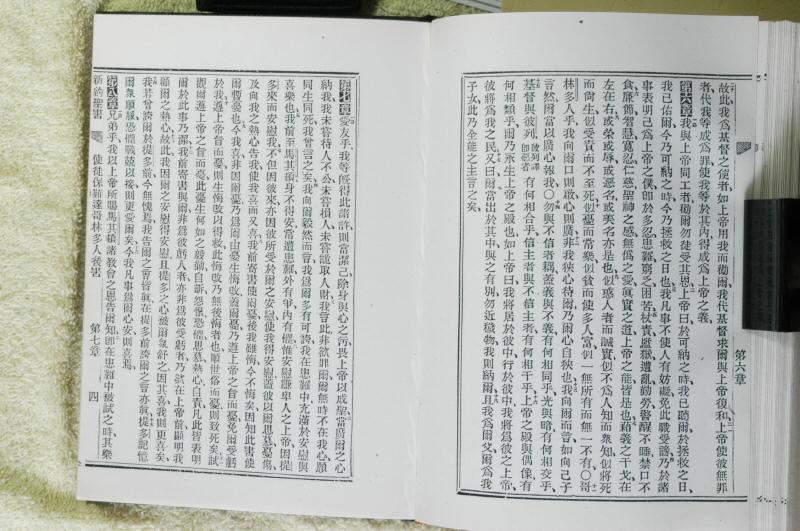 故此我爲基督之使者如上帝用我而勸爾我代基督求爾與上帝復和上帝使彼無罪
者代我等成爲罪使我等於其內得成爲上帝之義
第六章 我與上帝同工者勸爾勿徒受其恩上帝曰於可納之時我已聽爾於拯救之日
我已佑爾今乃可納之時今乃拯救之日也我凡事不使人有妨礙免此職受謗乃於諸
事表明己爲上帝之僕卽於多忍患難窮乏困苦杖責監獄遭亂勤勞警醒不睡禁口不
食廉節智慧寬忍仁慈聖神之感無僞之愛眞實之道上帝之能皆是也藉義之干戈在
左在右或榮或辱或惡名或美名亦是也似惑人者而誠實似不爲人知而衆知似將死
而尙生似受責而不至死似憂而常樂似貧而使多人富似一無所有而無一不有○哥
林多人乎我向爾口則啟心則廣非我狹心待爾乃爾心自狹也我向爾而言如向己子
言然爾當以廣心報我○勿與不信者耦蓋義與不義有何相同乎光與暗有何相交乎
基督與彼列 彼列譯卽惡者 有何相合乎信主者與不信主者有何相干乎上帝之殿與偶像有
何相類乎爾乃永生上帝之殿也如上帝曰我將居於彼中行於彼中我將爲彼之上帝
彼將爲我之民又曰爾當出於其中與之有別勿近穢物我則納爾且我爲爾父爾爲我
子女此乃全能之主言之矣
第六章
第七章 愛友乎我等旣得此諸許則當潔己除身與心之污畏上帝以成聖當廣爾之心
納我我未嘗待人不公未嘗損人未嘗詭取人財我言此非欲罪爾爾無時不在我心願
同生同死我曾言之矣我向爾毅然而言我爲爾多有可誇我在患難中充滿於安慰與
喜樂也我前至馬其頓身不得安常遭患難外有爭內有懼惟安慰謙卑人之上帝因提
多來而安慰我不但因彼來亦因彼所受於爾之安慰使我得安慰蓋彼以爾思慕憂傷
及向我之熱心告我使我喜而又喜我前寄書使爾憂後我雖悔今不悔矣因知此書使
爾暫憂也今我喜非因爾憂乃爲爾由憂生悔改蓋爾憂乃遵上帝之旨而憂免爾受虧
於我遵上帝旨而憂則生悔改以得救此悔改乃無後悔者也順世俗而憂則致死矣試
觀爾遵上帝之旨而憂此憂生何如之殷勤自訴怨恨恐懼思慕熱心自責凡此皆表明
爾於此事乃潔我前寄書與爾非爲彼虧人者亦非爲彼受虧者乃欲在上帝前顯明我
顧爾之熱心故此我因爾之安慰得安慰且提多之心被爾衆舒之因其喜我則更喜矣
我若曾誇爾於提多前今無愧焉我告爾之言皆眞在提多前誇爾之言亦眞提多記憶
爾衆順服恐懼戰兢以接則更愛爾矣今我凡事爲爾心安則喜焉
第八章 兄弟乎我以上帝所賜馬其頓諸敎會之恩告爾知卽在患難中被試之時其樂
新約聖書 使徒保羅達哥林多人後書 第七章 四